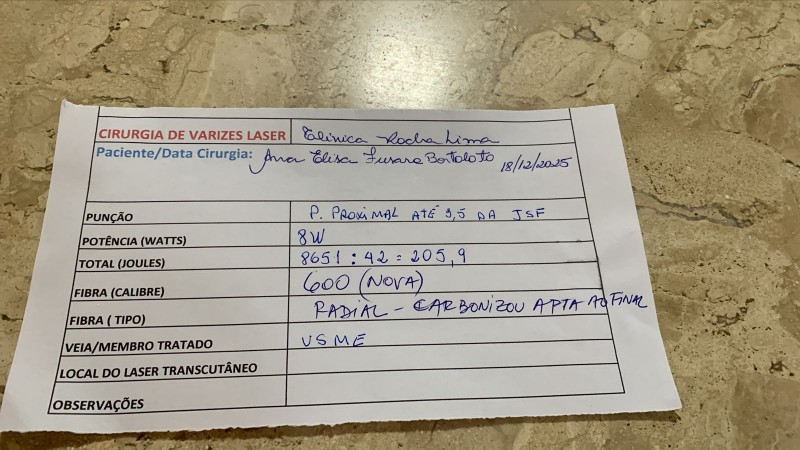 CIRURGIA DE VARIZES LASER Clinica Rocha Lima
Paciente/Data Cirurgia: Ana Elisa Furare Bortoloto 18/12/2025
PUNÇÃO P. PROXIMAL ATÉ 9,5 DA JSF
POTÊNCIA (WATTS) 8W
TOTAL (JOULES) 8651 : 42 = 205,9
FIBRA (CALIBRE) 600 (NOVA)
FIBRA ( TIPO) RADIAL - CARBONIZOU A PTA AO FINAL
VEIA/MEMBRO TRATADO VSME
LOCAL DO LASER TRANSCUTÂNEO
OBSERVAÇÕES